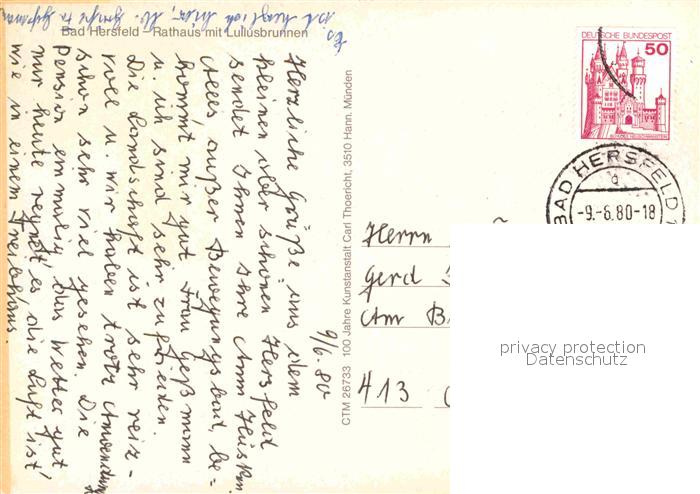 Bad Hersfeld - Rathaus mit Lullusbrunnen
9/6.80
Herzliche Grüße aus dem
kleinen aber schönen Hersfeld
sendet Ihnen Ihre Ann
Alles außer Bewegungsbad, be-
kommt mir gut Frau Geßmann
u. ich sind sehr zufrieden.
Die Landschaft ist sehr reiz-
voll u. wir haben trotz Anwendung
schon sehr viel gesehen. Die
Pension einmalig, das Wetter gut
nur heute regnet es die Luft ist
wie in einem Treibhaus.
CTM 26733 100 Jahre Kunstanstalt Carl Thoericht, 3510 Hann. Münden
DEUTSCHE BUNDESPOST
50
BAD HERSFELD 1
d
-9.-6.80-18
Herrn
Gerd
Am B
413
privacy protection
Datenschutz